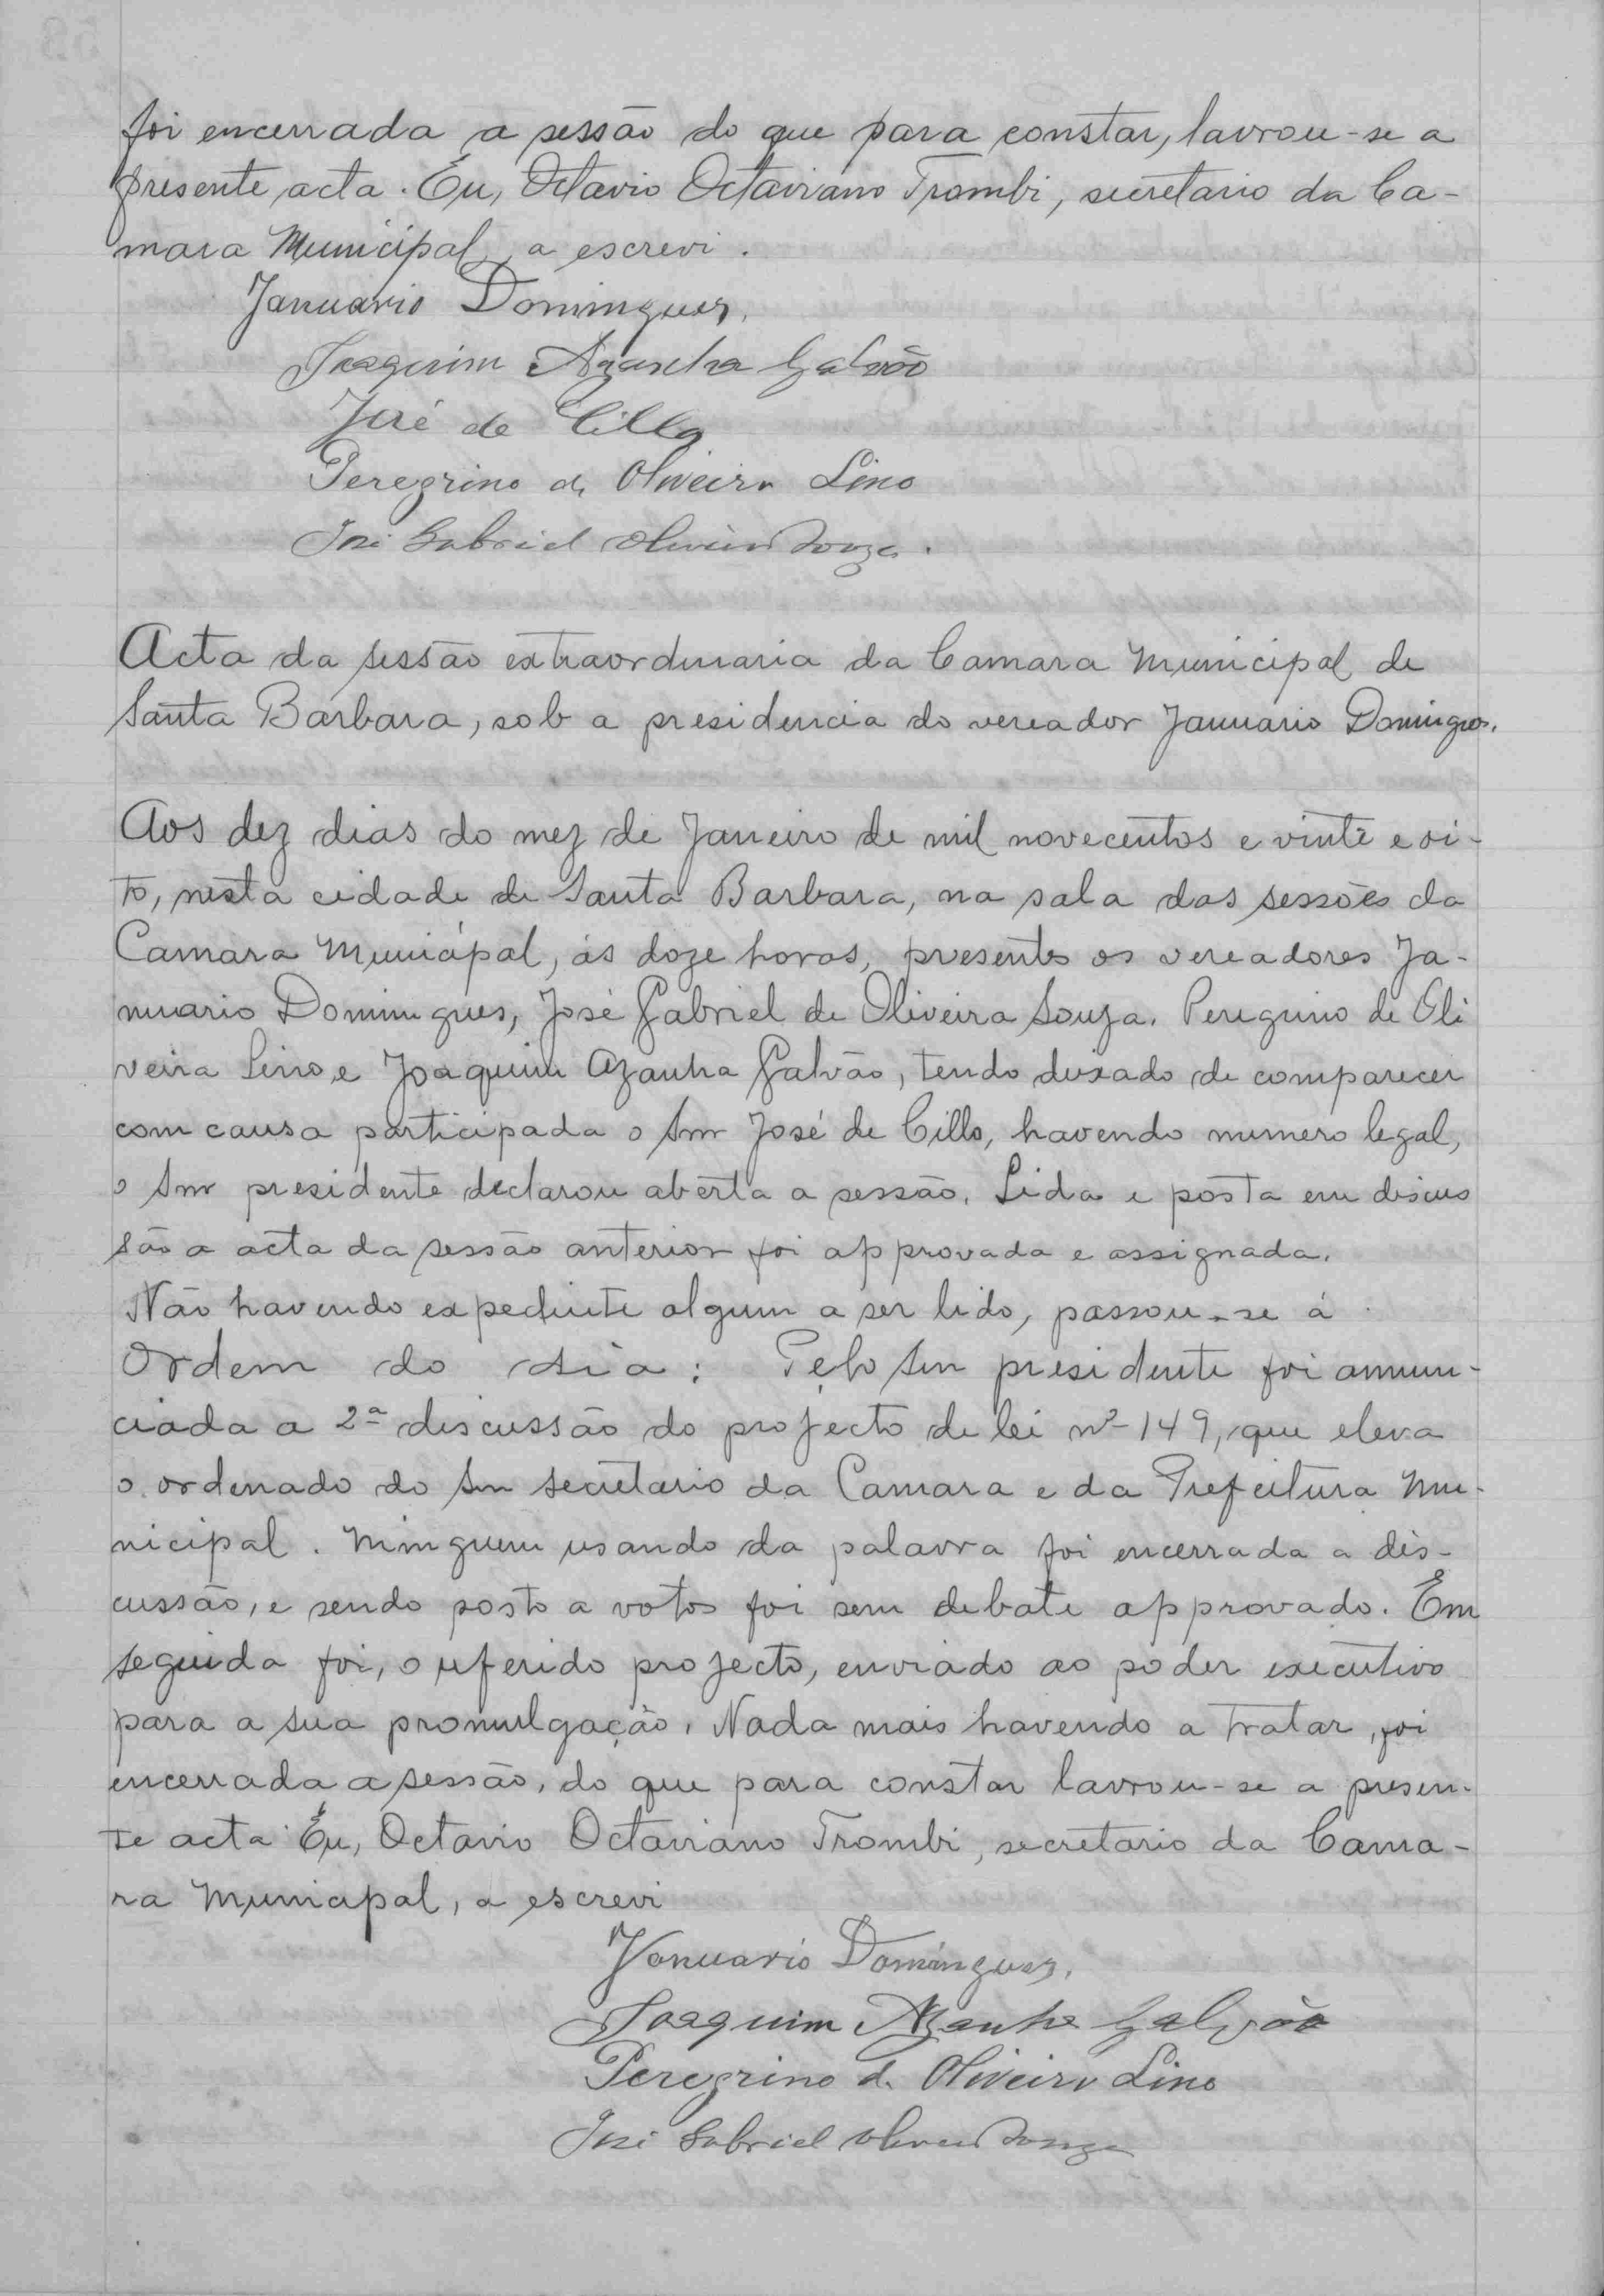 foi encerrada a sessão do que para constar, lavrou-se a
presente acta. Eu, Octavio Octaviano Trombi, secretario da Ca-
mara Municipal, a escrevi.
Januario Domingues.
Joaquim Azanha Galvão
José de Cillo
Peregrino de Oliveira Lino
José Gabriel Oliveira Souza.
Acta da sessão extraordinaria da Camara Municipal de
Santa Barbara, sob a presidencia do vereador Januario Domingues.
Aos dez dias do mez de Janeiro de mil novecentos e vinte e oi-
to, nesta cidade de Santa Barbara, na sala das sessões da
Camara Municipal, ás doze horas, presentes os vereadores Ja-
nuario Domingues, José Gabriel de Oliveira Souza, Peregrino de Oli
veira Lino e Joaquim Azanha Galvão, tendo deixado de comparecer
com causa participada o Snr José de Cillo, havendo numero legal,
o Snr presidente declarou aberta a sessão. Lida e posta em discus
são a acta da sessão anterior foi approvada e assignada.
Não havendo expediente algum a ser lido, passou-se á
Ordem do dia: Pelo Snr presidente foi annun-
ciada a 2ª discussão do projecto de lei nº 149, que eleva
o ordenado do Snr secretario da Camara e da Prefeitura Mu-
nicipal. Ninguem usando da palavra foi encerrada a dis-
cussão, e sendo posto a votos foi sem debate approvado. Em
seguida foi, o referido projecto, enviado ao poder executivo
para a sua promulgação. Nada mais havendo a tratar, foi
encerrada a sessão, do que para constar lavrou-se a presen-
te acta. Eu, Octavio Octaviano Trombi, secretario da Cama-
ra Municipal, a escrevi
Januario Domingues.
Joaquim Azanha Galvão
Peregrino de Oliveira Lino
José Gabriel Oliveira Souza